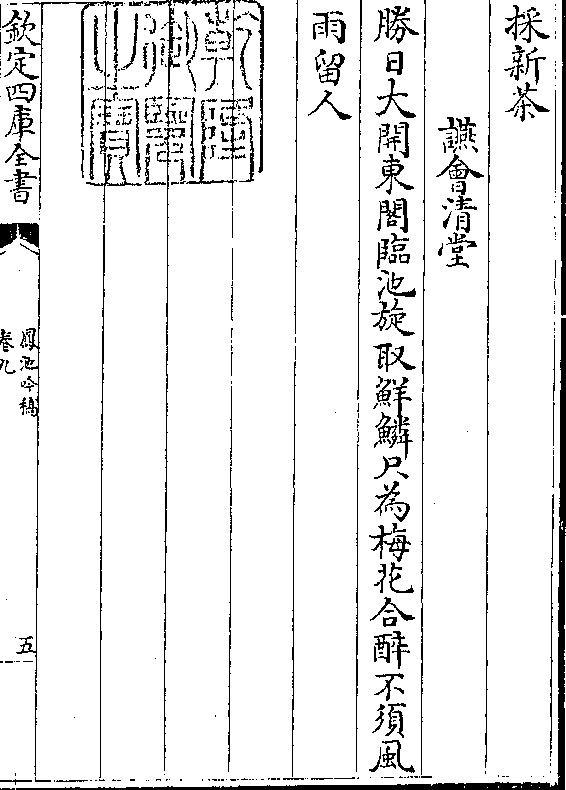 採新茶
讌會清堂
勝日大開東閣臨池旋取鮮鱗只為梅花合醉不須風
雨留人
乾隆御覽之寶
欽定四庫全書
鳳池吟稿
卷九
五